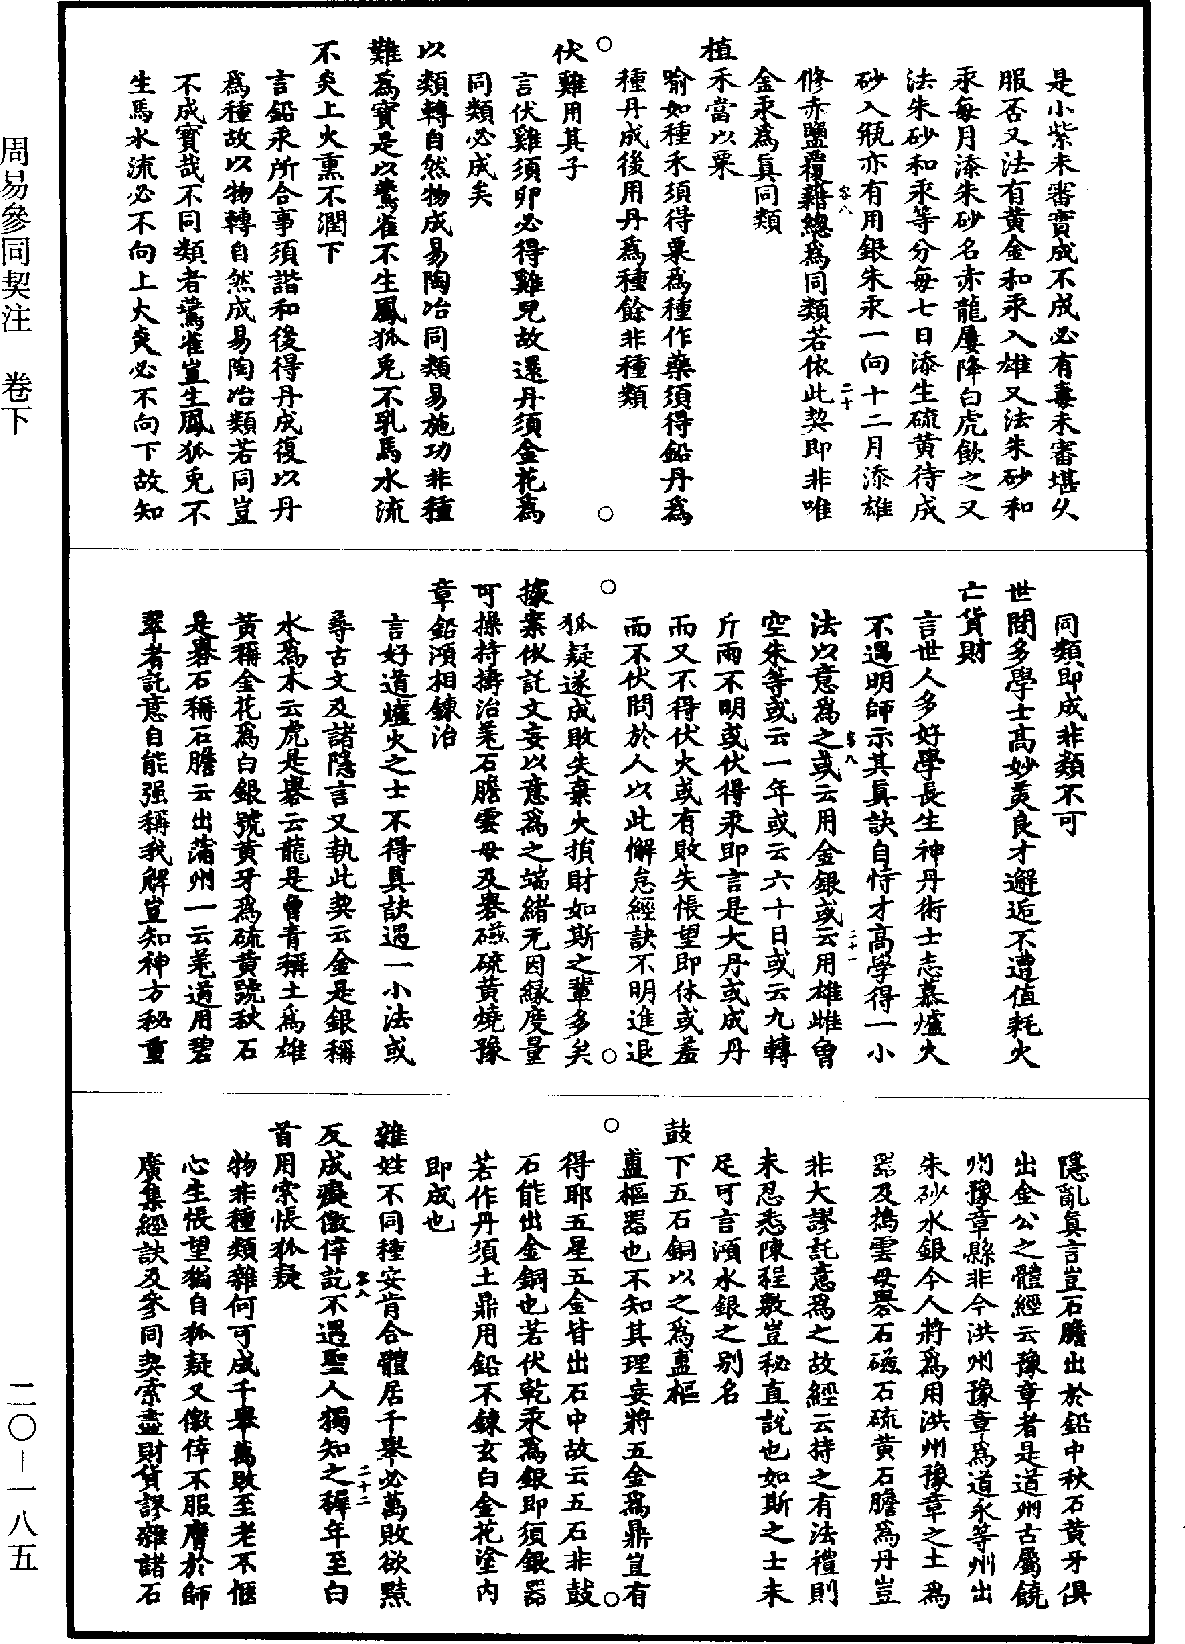 周易參同契注　卷下
二〇—一八五
是小紫未審寶成不成必有毒未審堪久
服否又法有黃金和汞入雄又法朱砂和
汞每月添朱砂名赤龍屢降白虎飲之又
法朱砂和汞等分每七日添生硫黃待成
砂入瓶亦有用銀朱汞一向十二月添雄
修赤鹽覆藉總為同類若依此契即非唯
容八
二十
金汞為真同類
植禾當以粟
喻如種禾須得粟為種作藥須得鉛丹為
種丹成後用丹為種餘非種類
伏雞用其子
言伏雞須卵必得雞兒故還丹須金花為
同類必成矣
以類轉自然物成易陶冶同類易施功非種
難為寶是以鷰雀不生鳳狐兔不乳馬水流
不炎上火熏不潤下
言鉛汞所合事須諧和後得丹成復以丹
為種故以物轉自然成易陶冶類若同豈
不成寶哉不同類者鷰雀豈生鳳狐兔不
生馬水流必不向上火炎必不向下故知
同類即成非類不可
世間多學士高妙美良才邂逅不遭值耗火
亡貨財
言世人多好學長生神丹術士志慕爐火
不遇明師示其真訣自恃才高學得一小
法以意為之或云用金銀或云用雄雌曾
容八
二十一
空朱等或云一年或云六十日或云九轉
斤兩不明或伏得汞即言是大丹或成丹
而又不得伏火或有敗失悵望即休或羞
而不伏問於人以此懈怠經訣不明進退
狐疑遂成敗失棄火損財如斯之輩多矣
據案依託文妄以意為之端緒无因緣度量
可操持擣治羌石膽雲母及礜磁硫黃燒豫
章鉛澒相鍊治
言好道爐火之士不得真訣遇一小法或
尋古文及諸隱言又執此契云金是銀稱
水為木云虎是礜云龍是曾青稱土為雄
黃稱金花為白銀號黃牙為硫黃號秋石
是礜石稱石膽云出蒲州一云羌道用碧
翠者託意自能强稱我解豈知神方秘重
隱亂真言豈石膽出於鉛中秋石黃牙俱
出金公之體經云豫章者是道州古屬饒
州豫章縣非今洪州豫章為道永等州出
朱砂水銀今人將為用洪州豫章之土為
器及擣雲母礜石磁石硫黃石膽為丹豈
非大謬託意為之故經云持之有法禮則
未忍悉陳程敷豈秘直說也如斯之士未
足可言澒水銀之別名
鼓下五石銅以之為𥂕樞
𥂕樞器也不知其理妄將五金為鼎豈有
得耶五星五金皆出石中故云五石非鼓
石能出金銅也若伏乾汞為銀即須銀器
若作丹須土鼎用鉛不鍊玄白金花塗內
即成也
雜姓不同種安肯合體居千舉必萬敗欲黠
反成癡僥倖訖不遇聖人獨知之稺年至白
容八
二十二
首用索悵狐疑
物非種類雜何可成千舉萬敗至老不愜
心生悵望猶自狐疑又僥倖不服膺於師
廣集經訣及參同契索盡財貨謬雜諸石